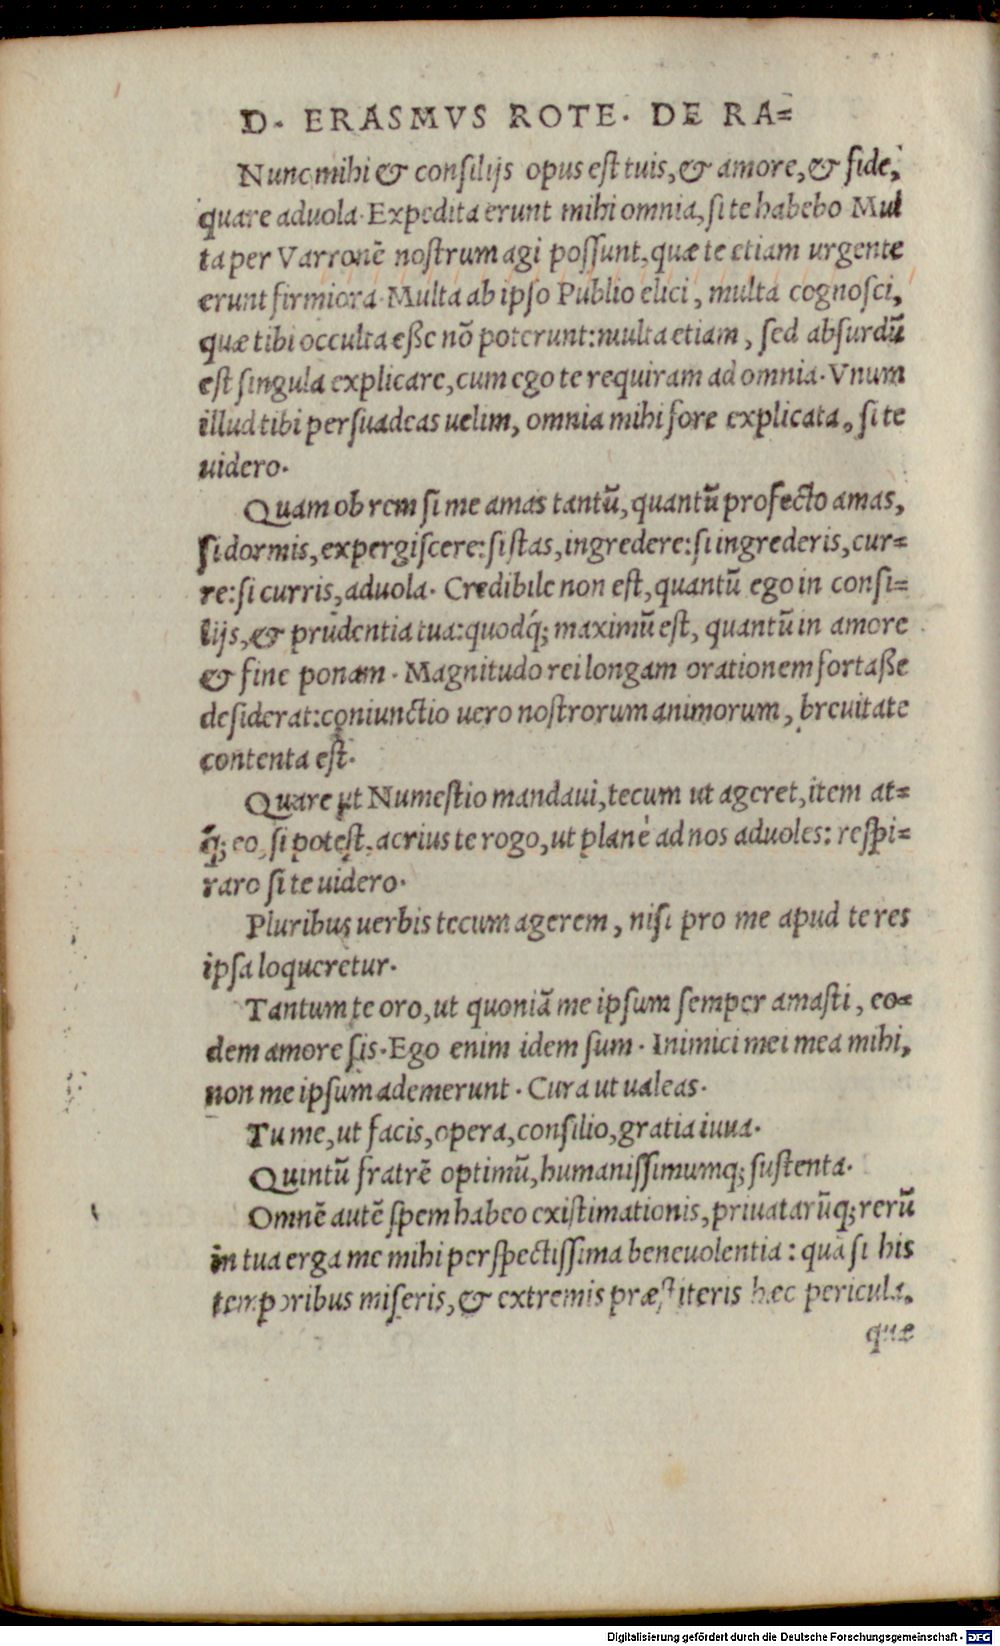 D. ERASMVS ROTE. DE RA=
Nunc mihi & consilijs opus est tuis, & amore, & fide,
quare aduola. Expedita erunt mihi omnia, si te habebo Mul
ta per Varronē nostrum agi possunt, quæ te etiam urgente
erunt firmiora. Multa ab ipso Publio elici, multa cognosci,
quæ tibi occulta eße nō poterunt: multa etiam, sed absurdū
est singula explicare, cum ego te requiram ad omnia. Vnum
illud tibi persuadeas uelim, omnia mihi fore explicata, si te
uidero.
Quam ob rem si me amas tantū, quantū profecto amas,
si dormis, expergiscere: si stas, ingredere: si ingrederis, cur=
re: si curris, aduola. Credibile non est, quantū ego in consi=
lijs, & prudentia tua: quodq́; maximū est, quantū in amore
& fine ponam. Magnitudo rei longam orationem fortaße
desiderat: coniunctio uero nostrorum animorum, breuitate
contenta est.
Quare ut Numestio mandaui, tecum ut ageret, item at=
q́; eo, si potest, acrius te rogo, ut planè ad nos aduoles: respi=
raro si te uidero.
Pluribus uerbis tecum agerem, nisi pro me apud te res
ipsa loqueretur.
Tantum te oro, ut quoniā me ipsum semper amasti, eo=
dem amore sis. Ego enim idem sum. Inimici mei mea mihi,
non me ipsum ademerunt. Cura ut ualeas.
Tu me, ut facis, opera, consilio, gratia iuua.
Quintū fratrē optimū, humanissimumq; sustenta.
Omnē autē spem habeo existimationis, priuatarūq; rerū
in tua erga me mihi perspectissima beneuolentia: quā si his
temporibus miseris, & extremis præstiteris hæc pericula,
quæ
Digitalisierung gefördert durch die Deutsche Forschungsgemeinschaft - DFG